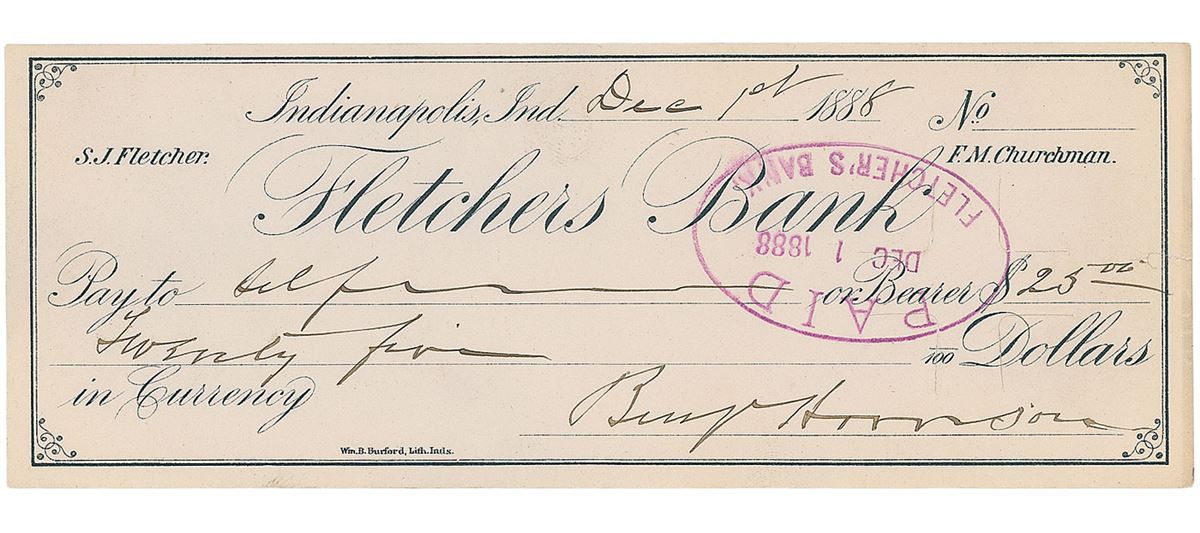 Indianapolis, Ind. Dec 1st 1888 No
S.J. Fletcher. F.M. Churchman.
Fletchers Bank
FLETCHER'S BANK
DEC 1 1888
PAID
Pay to Self or Bearer $25.00
Twenty five /100 Dollars
in Currency
Benj Harrison
Wm. B. Burford, Lith. Inds.